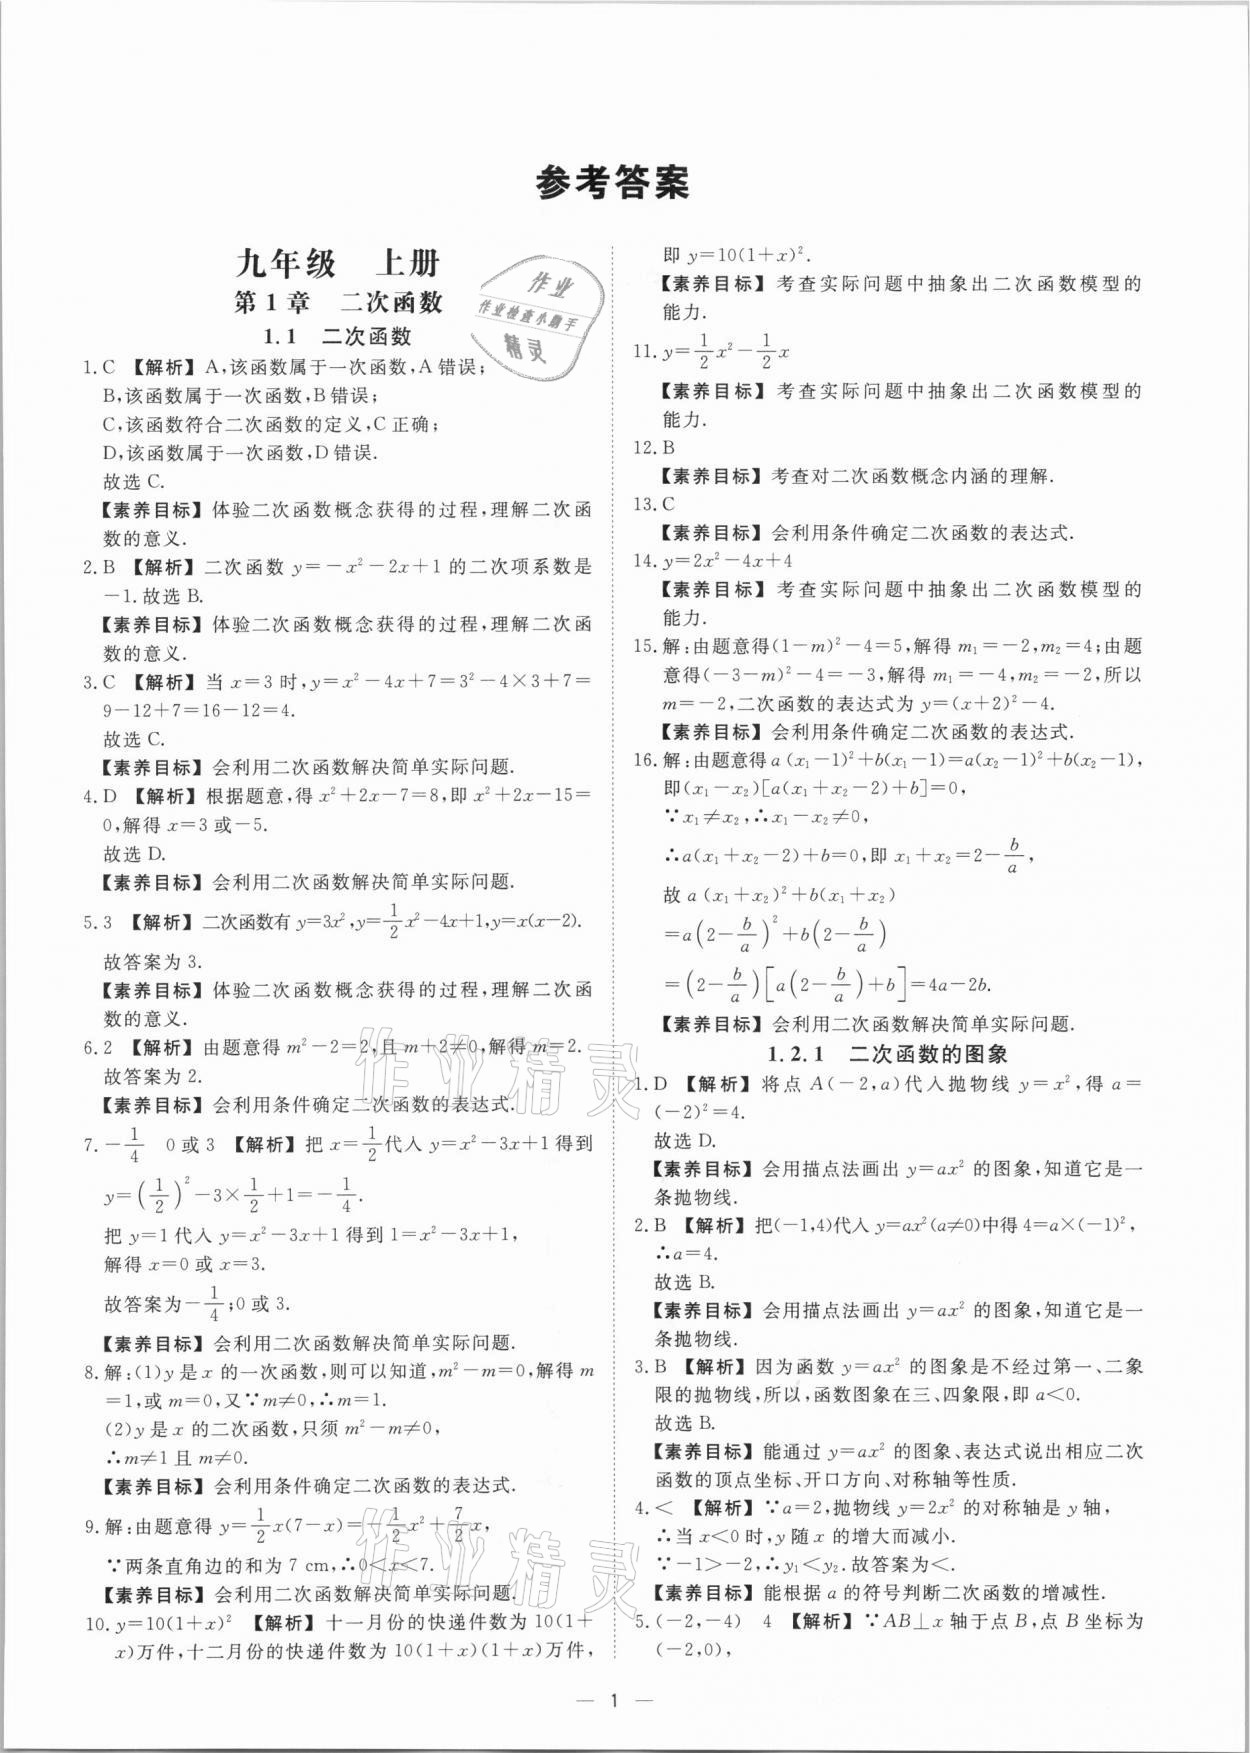 参考答案
九年级 上册
第1章 二次函数
1.1 二次函数
1. C 【解析】A,该函数属于一次函数,A错误;
B,该函数属于一次函数,B错误;
C,该函数符合二次函数的定义,C正确;
D,该函数属于一次函数,D错误.
故选C.
【素养目标】体验二次函数概念获得的过程,理解二次函
数的意义.
2. B 【解析】二次函数 y=-x²-2x+1 的二次项系数是
-1.故选B.
【素养目标】体验二次函数概念获得的过程,理解二次函
数的意义.
3. C 【解析】当 x=3 时,y=x²-4x+7=3²-4×3+7=
9-12+7=16-12=4.
故选C.
【素养目标】会利用二次函数解决简单实际问题.
4. D 【解析】根据题意,得 x²+2x-7=8,即 x²+2x-15=
0,解得 x=3 或-5.
故选D.
【素养目标】会利用二次函数解决简单实际问题.
5. 3 【解析】二次函数有 y=3x²,y=1/2x²-4x+1,y=x(x-2).
故答案为3.
【素养目标】体验二次函数概念获得的过程,理解二次函
数的意义.
6. 2 【解析】由题意得 m²-2=2,且 m+2≠0,解得 m=2.
故答案为2.
【素养目标】会利用条件确定二次函数的表达式.
7. -1/4 0或3 【解析】把 x=1/2代入 y=x²-3x+1 得到
y=(1/2)²-3×1/2+1=-1/4.
把 y=1代入 y=x²-3x+1 得到 1=x²-3x+1,
解得 x=0 或 x=3.
故答案为-1/4;0或3.
【素养目标】会利用二次函数解决简单实际问题.
8. 解:(1)y是x的一次函数,则可以知道,m²-m=0,解得 m
=1,或 m=0,又∵m≠0,∴m=1.
(2)y是x的二次函数,只须 m²-m≠0,
∴m≠1且m≠0.
【素养目标】会利用条件确定二次函数的表达式.
9. 解:由题意得 y=1/2x(7-x)=-1/2x²+7/2x,
∵两条直角边的和为7 cm,∴0<x<7.
【素养目标】会利用二次函数解决简单实际问题.
10. y=10(1+x)² 【解析】十一月份的快递件数为10(1+
x)万件,十二月份的快递件数为10(1+x)(1+x)万件,
即 y=10(1+x)².
【素养目标】考查实际问题中抽象出二次函数模型的
能力.
11. y=1/2x²-1/2x
【素养目标】考查实际问题中抽象出二次函数模型的
能力.
12. B
【素养目标】考查对二次函数概念内涵的理解.
13. C
【素养目标】会利用条件确定二次函数的表达式.
14. y=2x²-4x+4
【素养目标】考查实际问题中抽象出二次函数模型的
能力.
15. 解:由题意得(1-m)²-4=5,解得 m₁=-2,m₂=4;由题
意得(-3-m)²-4=-3,解得 m₁=-4,m₂=-2,所以
m=-2,二次函数的表达式为 y=(x+2)²-4.
【素养目标】会利用条件确定二次函数的表达式.
16. 解:由题意得 a(x₁-1)²+b(x₁-1)=a(x₂-1)²+b(x₂-1),
即(x₁-x₂)[a(x₁+x₂-2)+b]=0,
∵x₁≠x₂,∴x₁-x₂≠0,
∴a(x₁+x₂-2)+b=0,即 x₁+x₂=2-b/a,
故 a(x₁+x₂)²+b(x₁+x₂)
=a(2-b/a)²+b(2-b/a)
=(2-b/a)[a(2-b/a)+b]=4a-2b.
【素养目标】会利用二次函数解决简单实际问题.
1.2.1 二次函数的图象
1. D 【解析】将点 A(-2,a)代入抛物线 y=x²,得 a=
(-2)²=4.
故选D.
【素养目标】会用描点法画出 y=ax² 的图象,知道它是一
条抛物线.
2. B 【解析】把(-1,4)代入 y=ax²(a≠0)中得4=a×(-1)²,
∴a=4.
故选B.
【素养目标】会用描点法画出 y=ax² 的图象,知道它是一
条抛物线.
3. B 【解析】因为函数 y=ax² 的图象是不经过第一、二象
限的抛物线,所以,函数图象在三、四象限,即 a<0.
故选B.
【素养目标】能通过 y=ax² 的图象、表达式说出相应二次
函数的顶点坐标、开口方向、对称轴等性质.
4. < 【解析】∵a=2,抛物线 y=2x² 的对称轴是 y 轴,
∴当 x<0 时,y 随 x 的增大而减小.
∵-1>-2,∴y₁<y₂.故答案为<.
【素养目标】能根据 a 的符号判断二次函数的增减性.
5. (-2,-4) 4 【解析】∵AB⊥x 轴于点B,点B坐标为
(-2,0),
— 1 —
作业
作业检查小助手
精灵
作业精灵
作业精灵